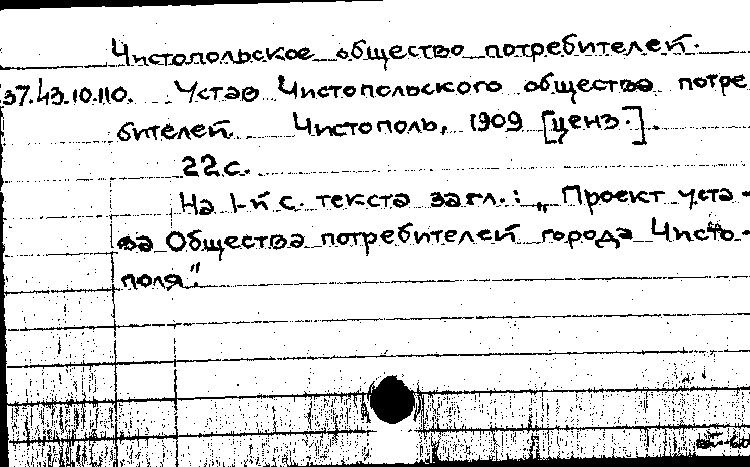 Чистопольское общество потребителей.
37.43.10.110. Устав Чистопольского общества потре
бителей. Чистополь, 1909 [ценз.].
22 с.
На 1-й с. текста загл.: „Проект уста-
ва Общества потребителей города Чисто-
поля".